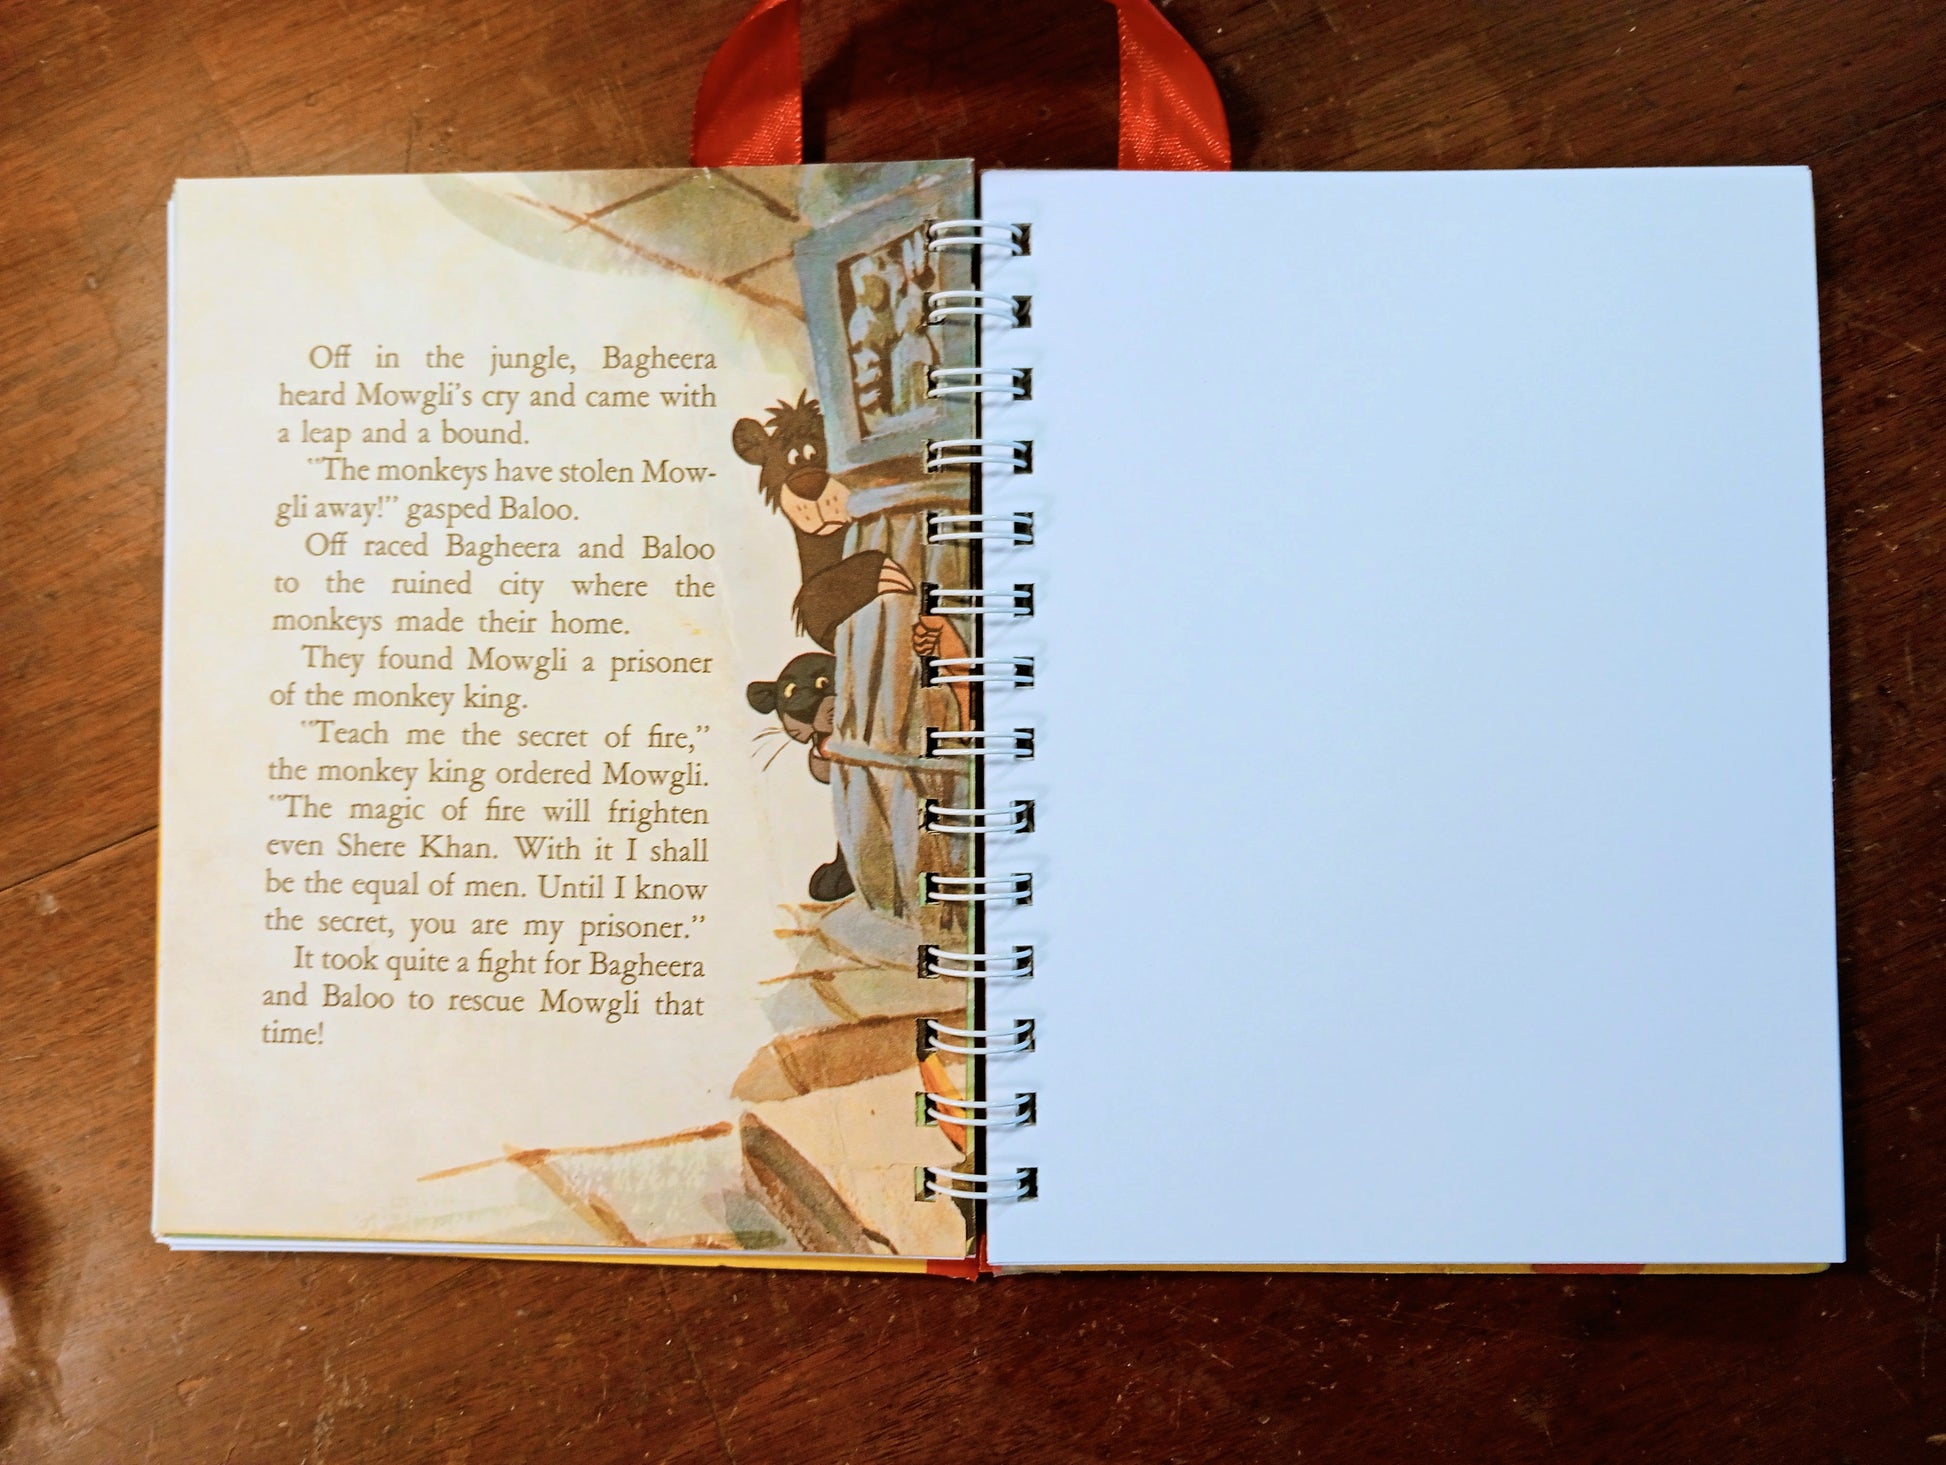 Off in the jungle, Bagheera
heard Mowgli's cry and came with
a leap and a bound.
"The monkeys have stolen Mow-
gli away!" gasped Baloo.
Off raced Bagheera and Baloo
to the ruined city where the
monkeys made their home.
They found Mowgli a prisoner
of the monkey king.
"Teach me the secret of fire,"
the monkey king ordered Mowgli.
"The magic of fire will frighten
even Shere Khan. With it I shall
be the equal of men. Until I know
the secret, you are my prisoner."
It took quite a fight for Bagheera
and Baloo to rescue Mowgli that
time!